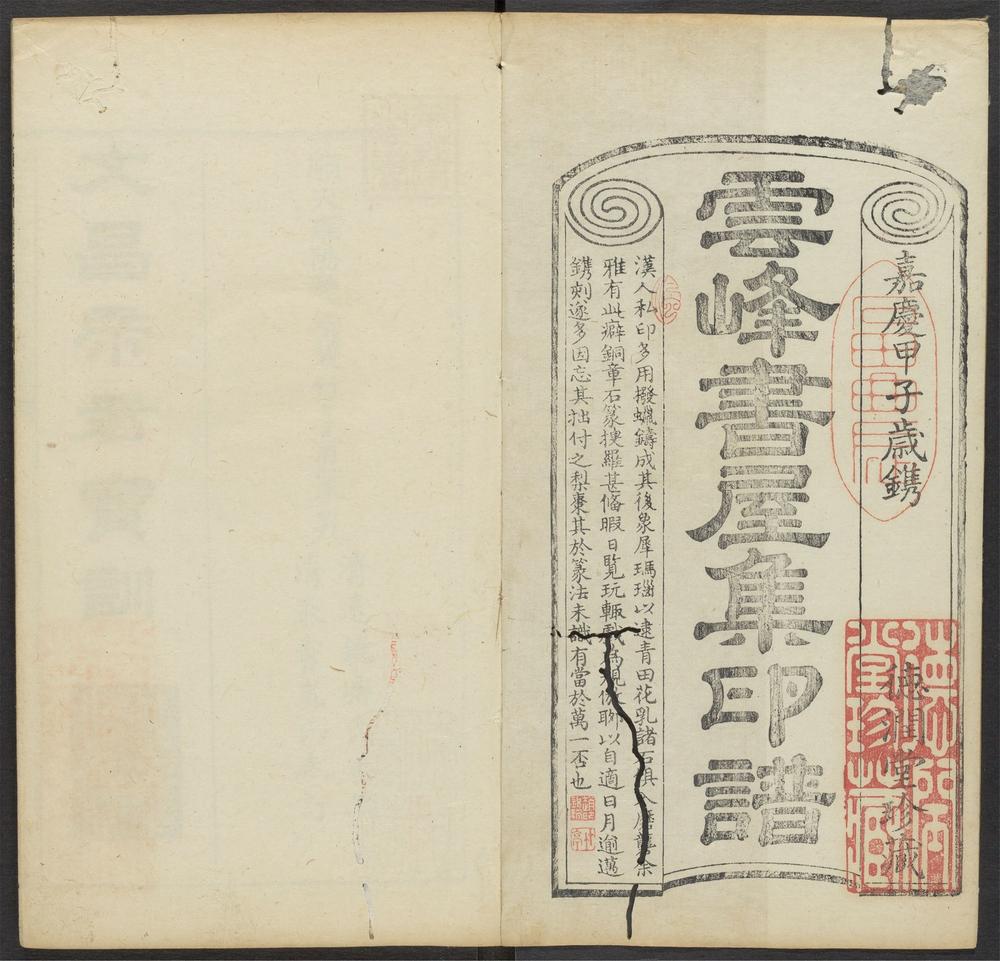 嘉慶甲子歲鐫
德潤堂珍藏
雲峰書屋集印譜
漢人私印多用撥蠟鑄成其後象犀瑪瑙以逮青田花乳諸石俱入磨礱余
雅有此癖銅章石篆搜羅甚俻暇日覽玩輙爲規倣聊以自適日月逾邁
鐫刻遂多因忘其拙付之梨棗其於篆法未識有當於萬一否也